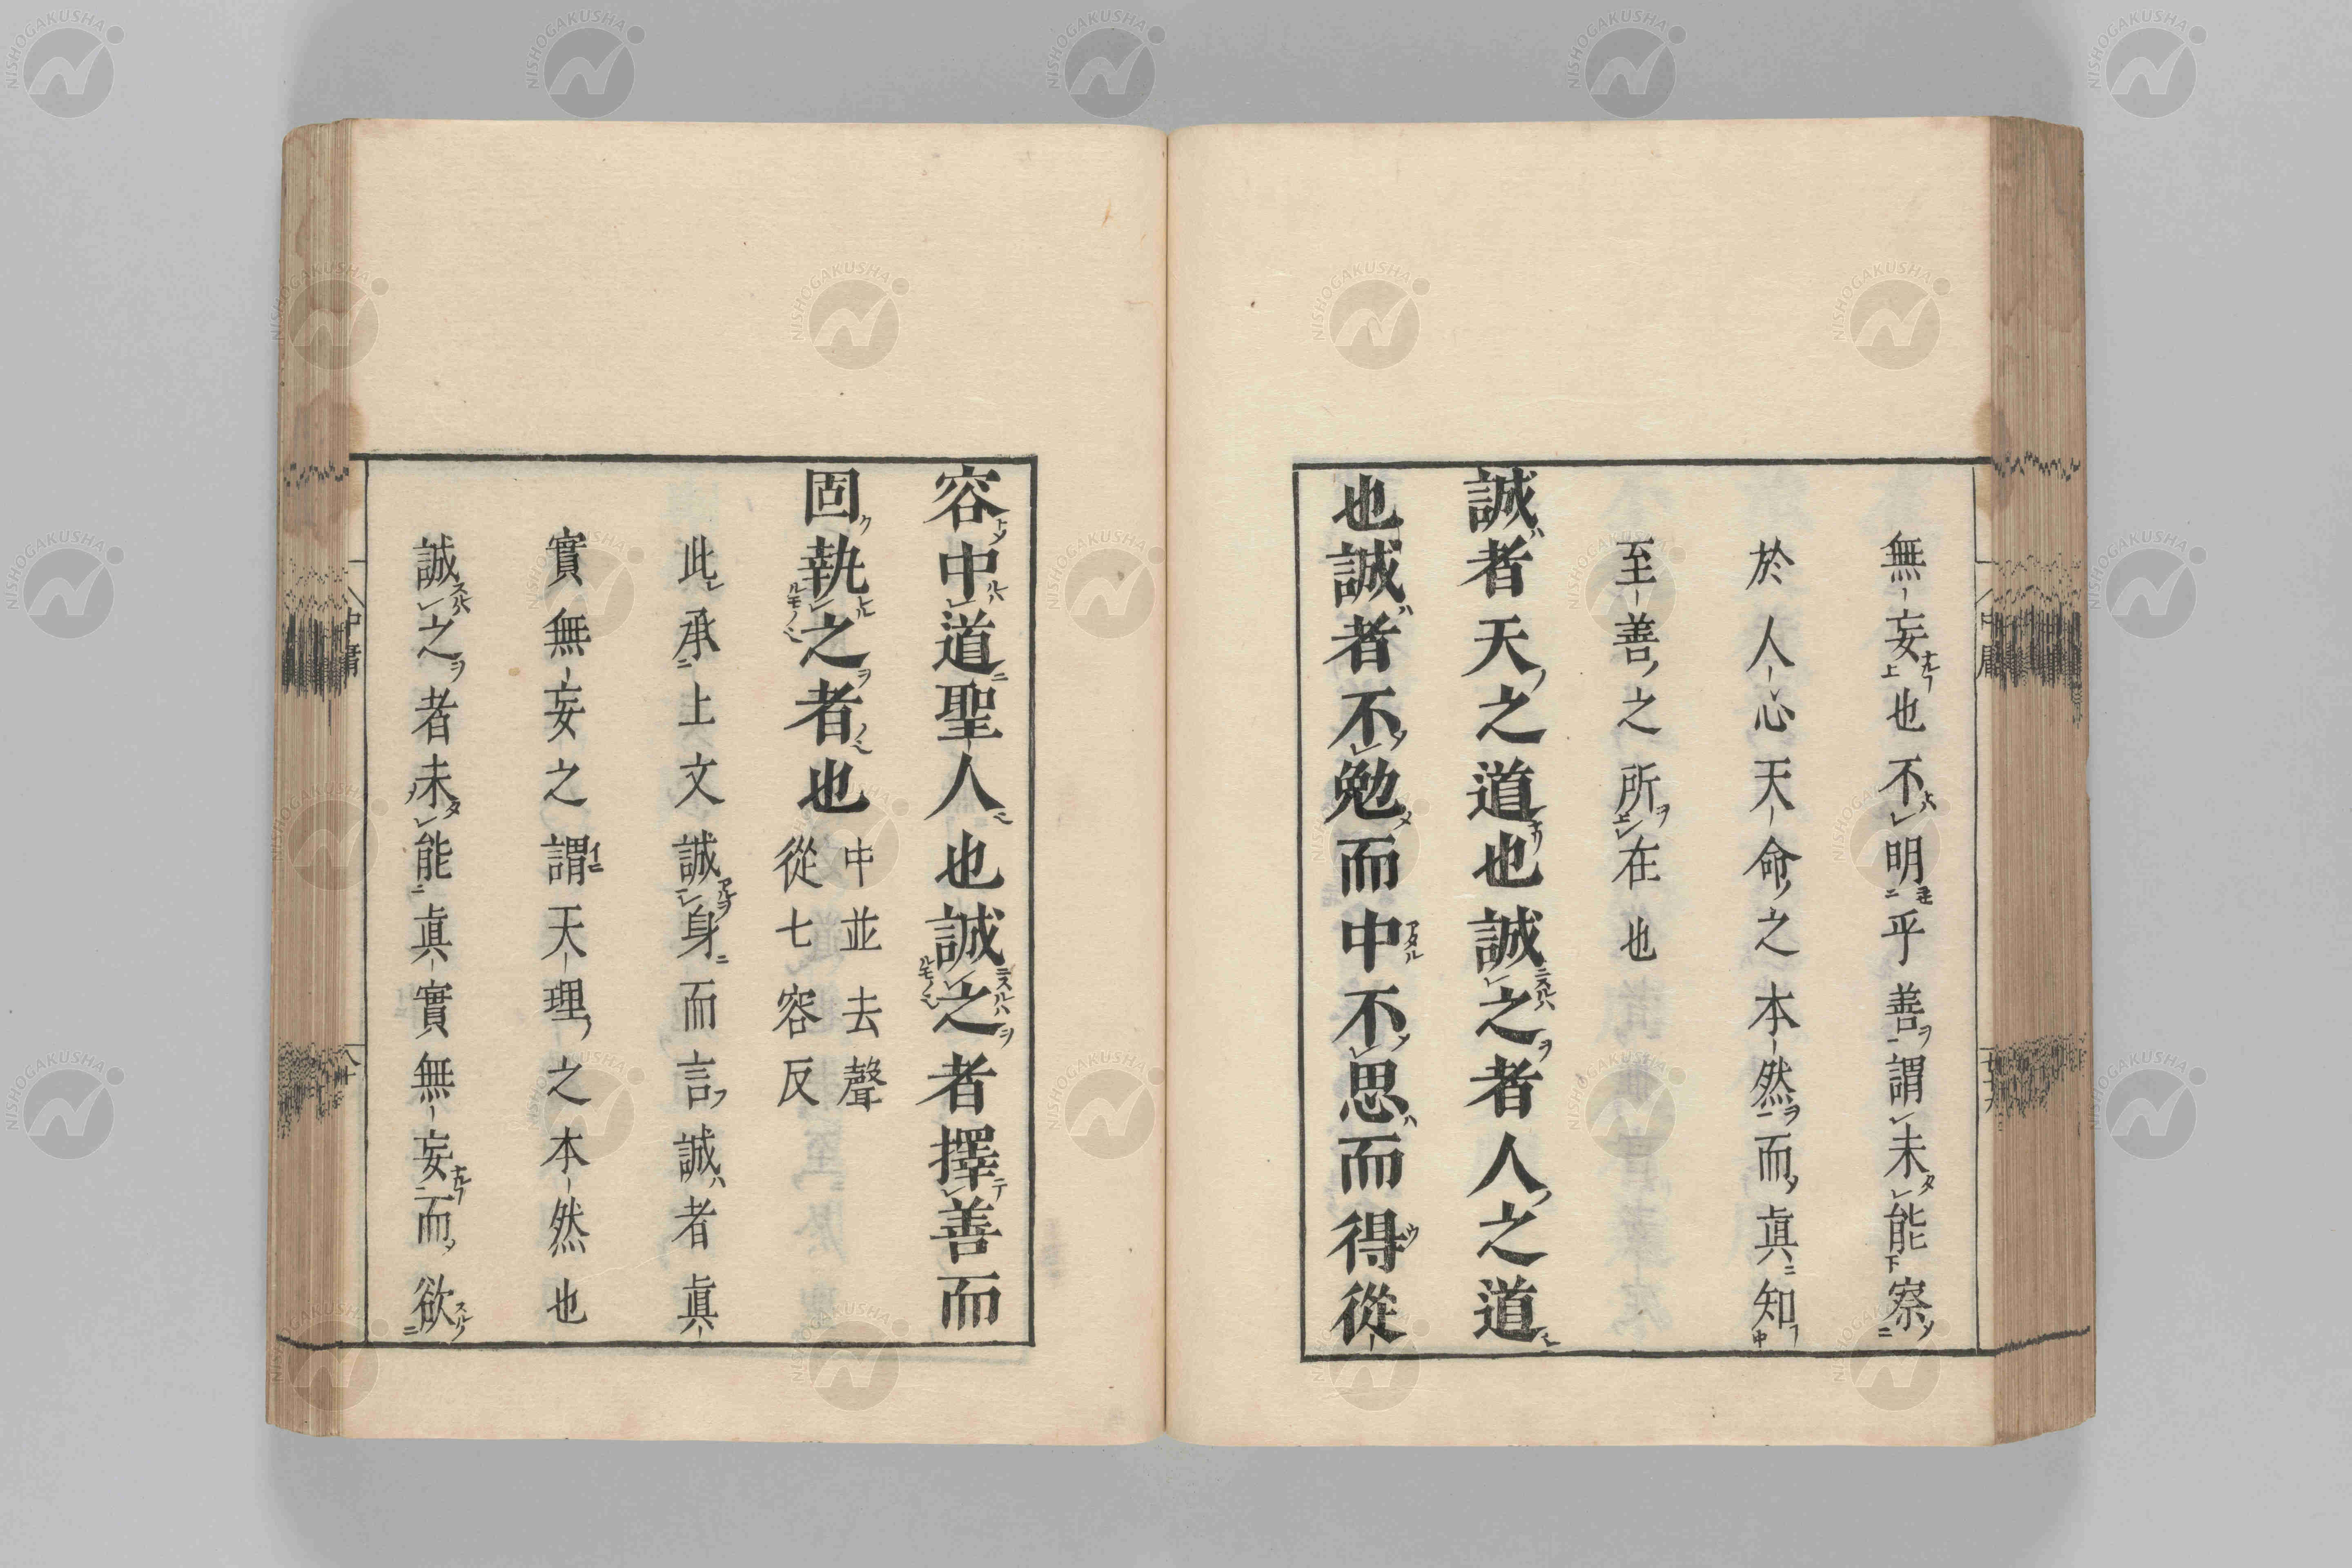 無妄也不明乎善謂未能察
於人心天命之本然而眞知
至善之所在也
誠者天之道也誠之者人之道
也誠者不勉而中不思而得從
容中道聖人也誠之者擇善而
固執之者也中並去聲從七容反
此承上文誠身而言誠者眞
實無妄之謂天理之本然也
誠之者未能眞實無妄而欲
中庸
NISHOGAKUSHA